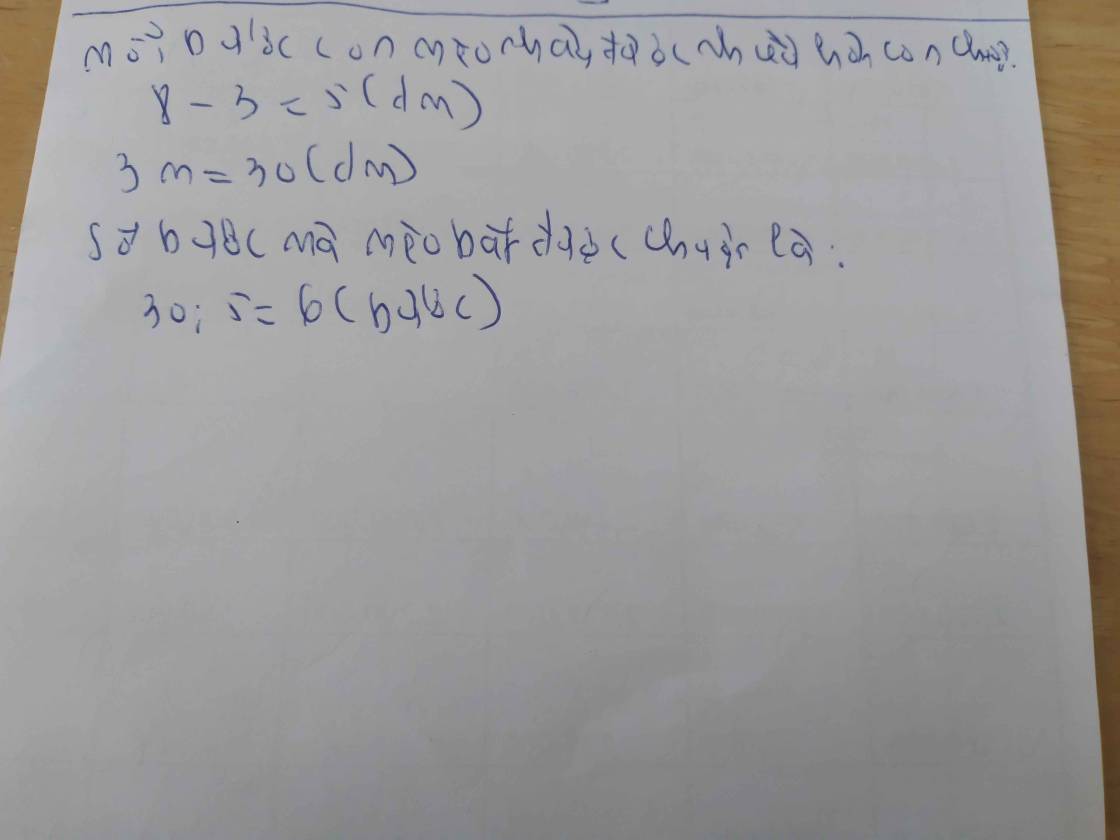 mỗi bước con mèo nhảy được nhiều hơn con chuột.
8 - 3 = 5 (dm)
3 m = 30 (dm)
Số bước mà mèo bắt được chuột là :
30 : 5 = 6 (bước)